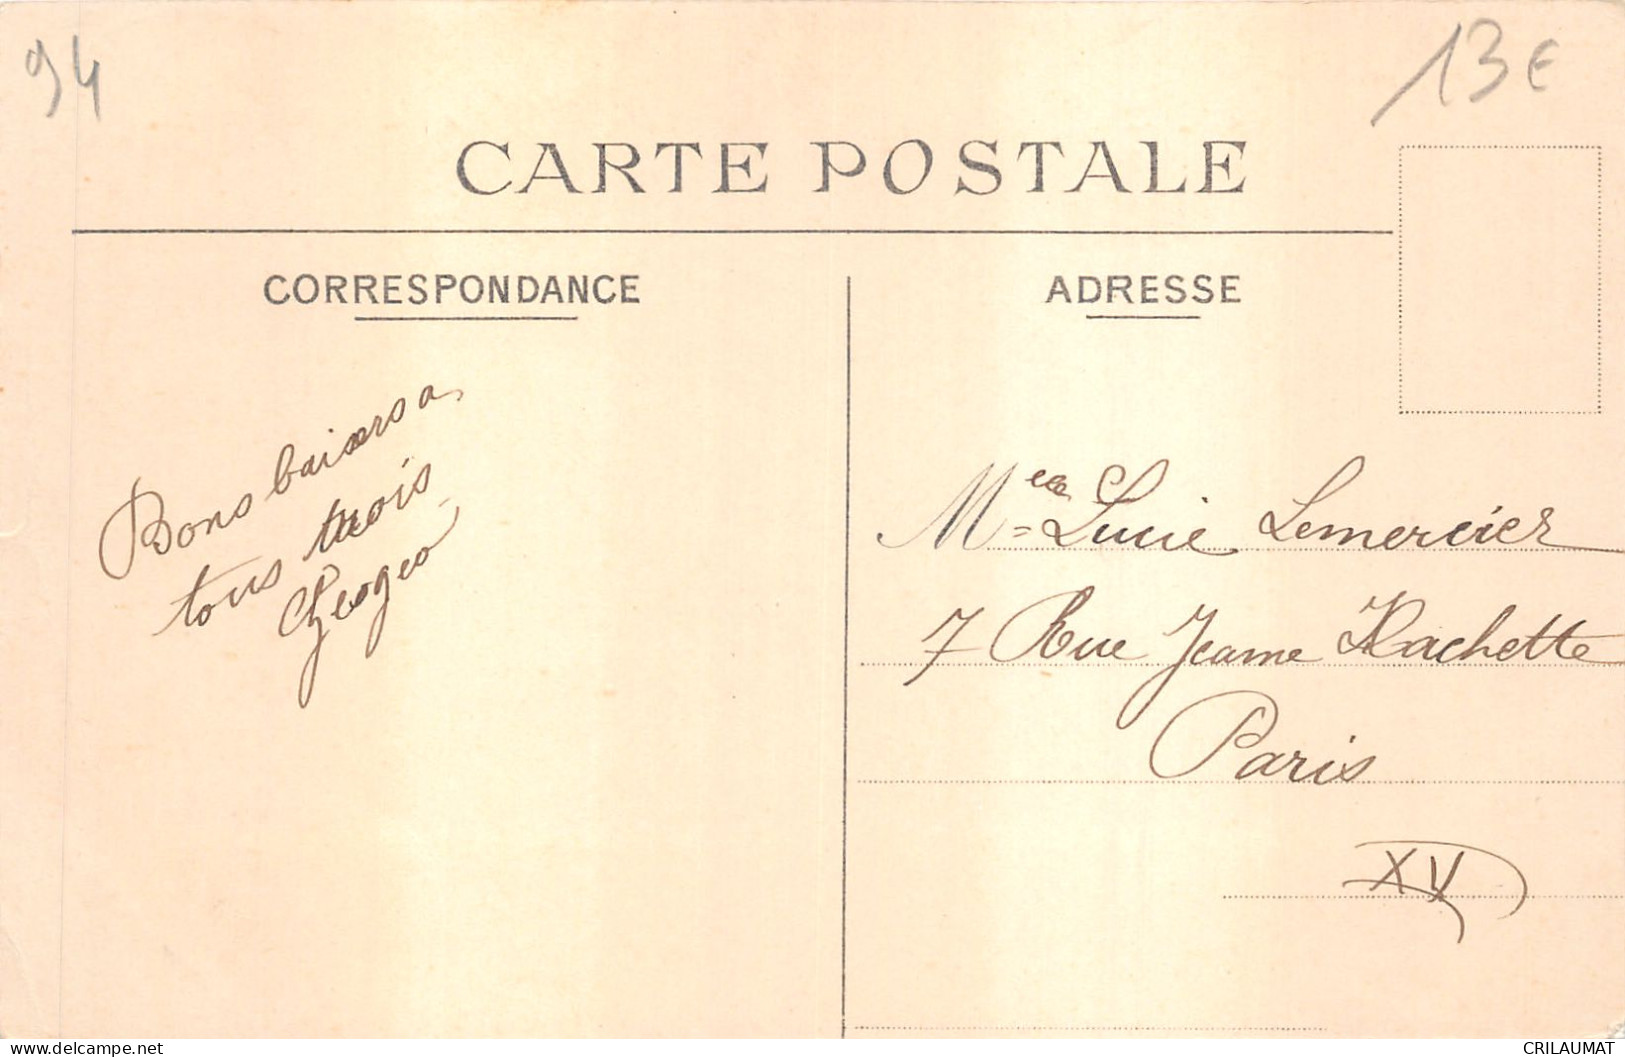 94
13€
CARTE POSTALE
CORRESPONDANCE
ADRESSE
Bons baisers a
tous trois
Georges
Mlle Lucie Lemercier
7 Rue Jeanne Hachette
Paris
XV
CRILAUMAT